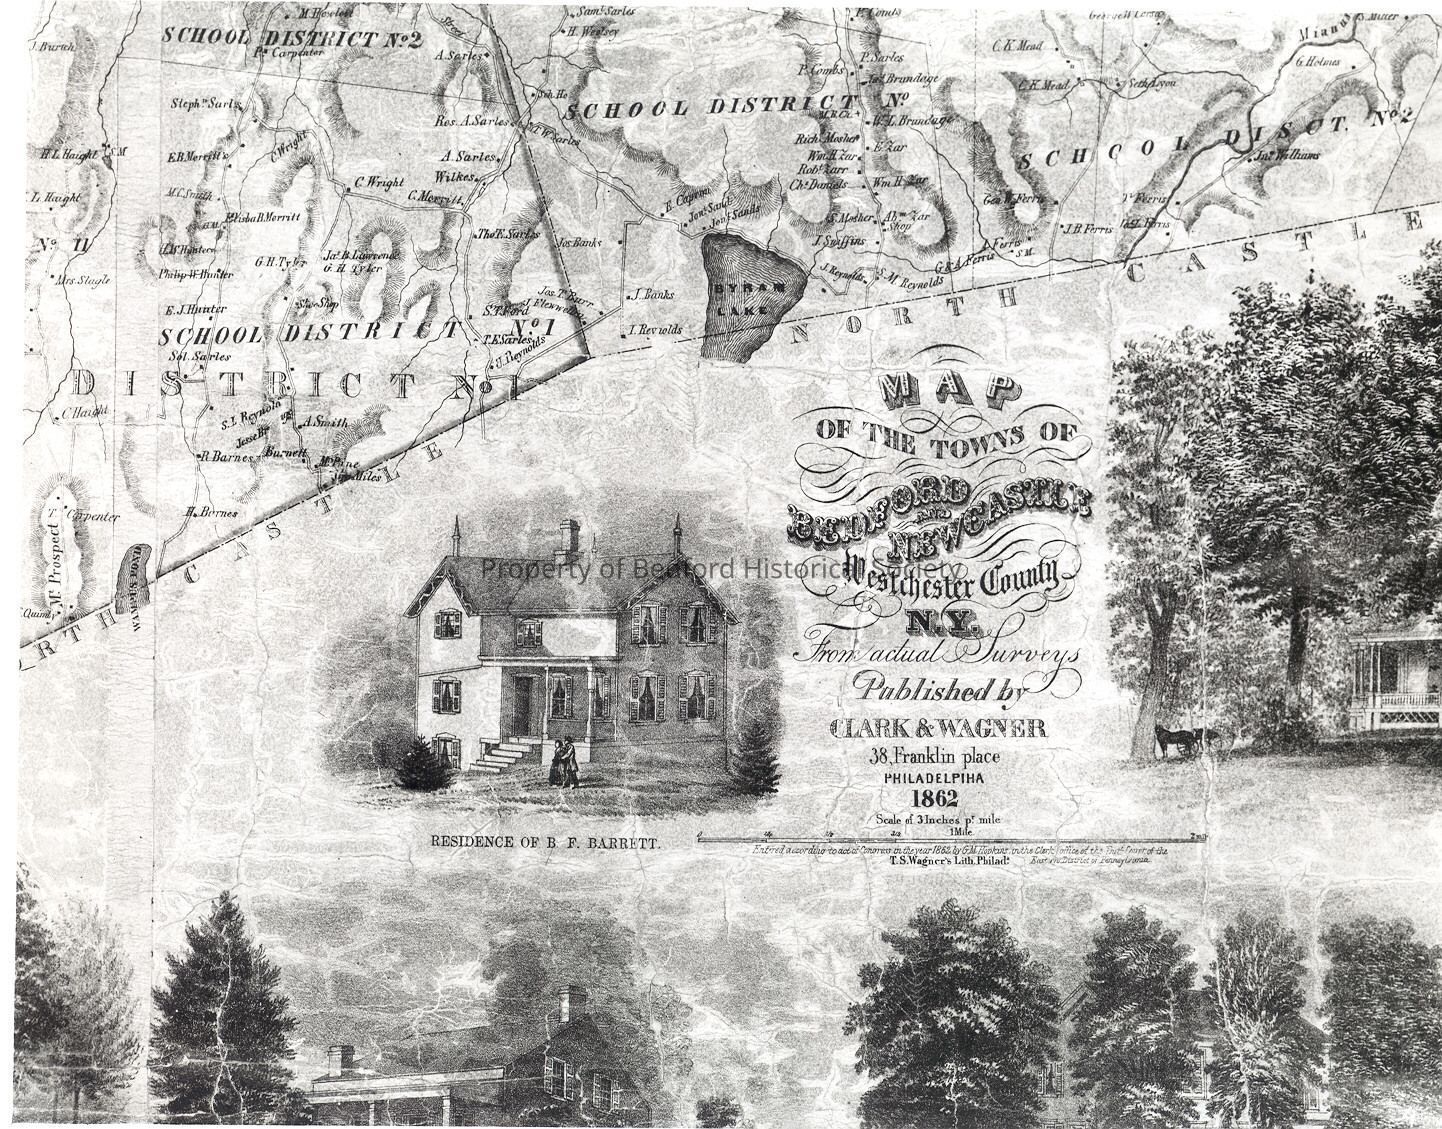 M. Howlett
SCHOOL DISTRICT No 2
J. Burch
P. Carpenter
A. Sarles
Saml. Sarles
H. Woolsey
P. Combs
P. Combs
P. Sarles
C. K. Mead
C. K. Mead
Seth Lyon
George W. Corsa
Mianus
S. Miller
G. Holmes
Sch. Ho
SCHOOL DISTRICT No
Jas. Brundage
W. L. Brundage
M.R.Ch.
Steph. Sarls
Res. A. Sarles
Rich. Mosher
E. Zar
SCHOOL DISCT. No 2
Jno. Williams
H. L. Haight
S M
E. B. Merritt
C. Wright
C. Wright
A. Sarles
Wilkes
C. Merritt
Wm H. Zar
Robt. Zarr
Chs. Daniels
Wm H. Zar
L. Haight
M. C. Smith
Elisha B. Merritt
E. Capron
Jont. Sand
Jont. Sands
S. Mosher
Abm. Zar
Shop
Geo. W. Ferris
J. B. Ferris
No 11
Philip W. Hunter
G. H. Tyler
Jas. B. Lawrence
G. H. Tyler
Tho. E. Sarles
Jos. Banks
J. Sniffins
J. Reynolds
S. M. Reynolds
G & A Ferris
A. Ferris
S.M.
Mrs. Slagle
Shoe Shop
E. J. Hunter
S. T. Ford
J. Banks
BYRAM
LAKE
SCHOOL DISTRICT No 1
T. E. Sarles
J. Reynolds
I. Reynolds
NORTH CASTLE
Sol. Sarles
DISTRICT No 1
C. Haight
S. L. Reynolds
A. Smith
R. Barnes
Burnett
H. Barnes
Carpenter
Mt Prospect
WAMPUS POND
Quimby
NORTH CASTLE
MAP
OF THE TOWNS OF
BEDFORD
AND
NEWCASTLE
Westchester County
N.Y.
From actual Surveys
Published by
CLARK & WAGNER
38, Franklin place
PHILADELPIHA
1862
Scale of 3 Inches pr. mile
1 Mile
Entered according to act of Congress in the year 1862 by G.M. Hopkins, in the Clerks office of the Distt. Court of the
Eastern District of Pennsylvania
T. S. Wagner's Lith. Philada.
RESIDENCE OF B. F. BARRETT.
Property of Bedford Historical Society